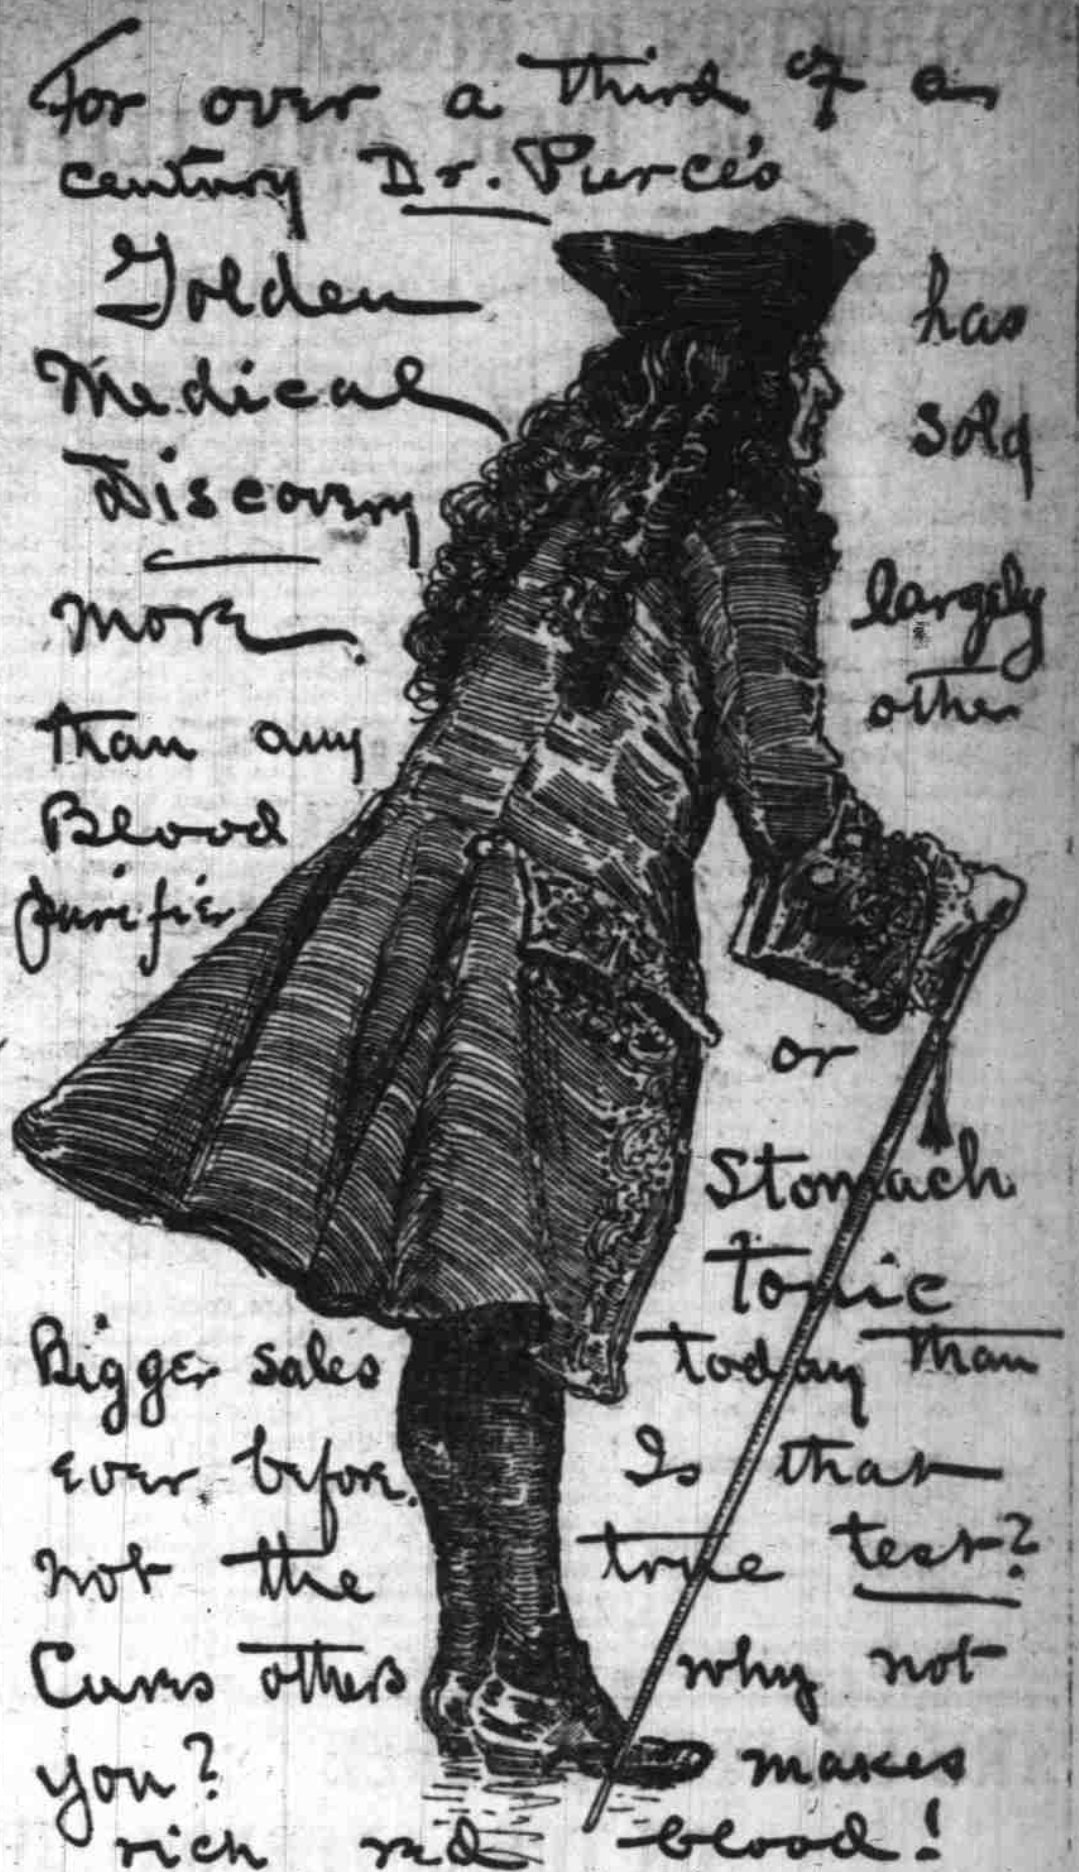 For over a third of a
century Dr. Pierce's
Golden has
Medical sold
Discovery
more largely
than any other
Blood
purifier
or
Stomach
tonic
Bigger sales today than
ever before. Is that
not the true test?
Cures others why not
you? makes
rich red blood!